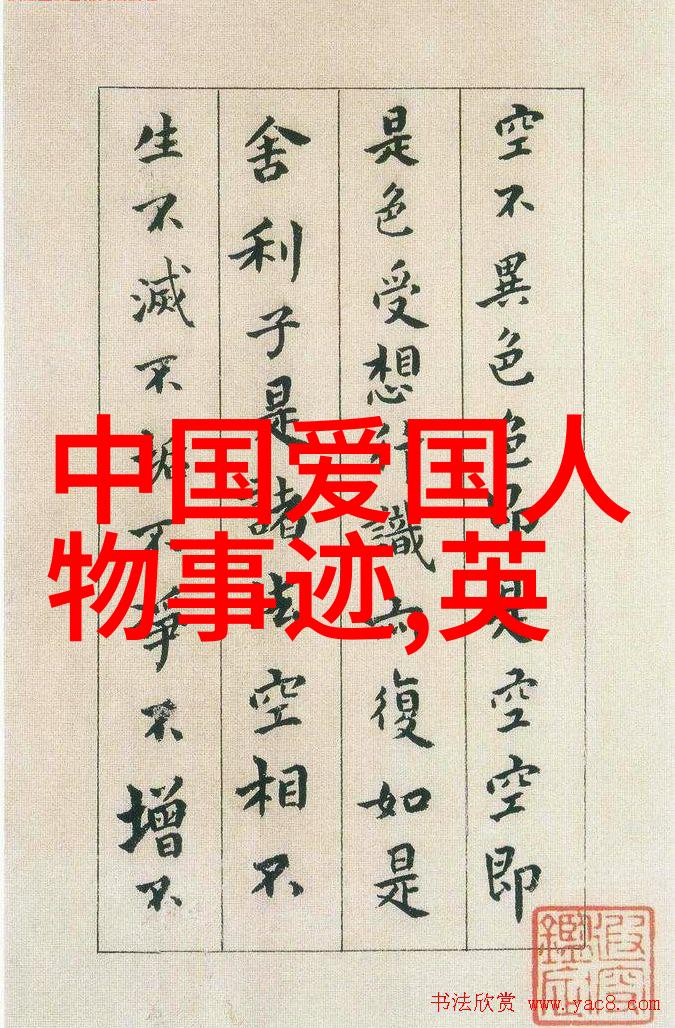 空不異色色即是空空即
是色受想行識亦復如是
舍利子是諸法空相不
生不滅不垢不淨不增不
中国爱国人
物事迹,英
书法欣赏 www.yac8.com